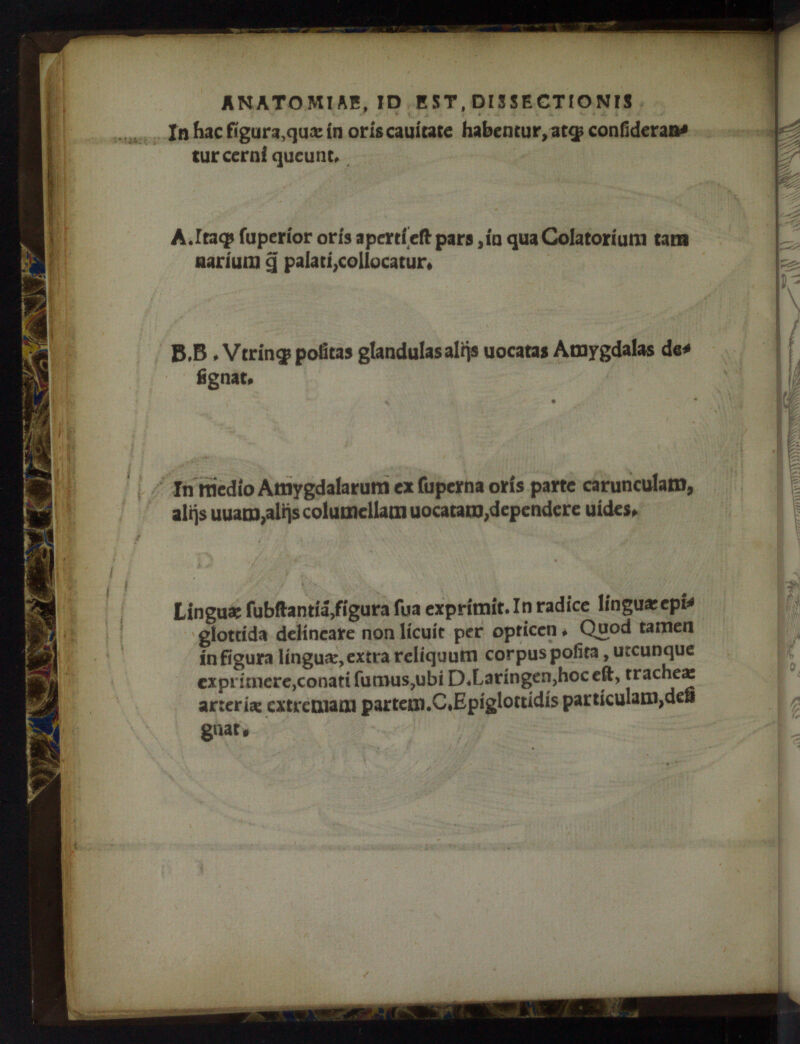 ANATOMIAE, ID EST, DISSECTIONIS
In hac figura,quæ in oris cauitate habentur, atqꝫ conſideran⸗
tur cerni queunt.
A.Itaqꝫ ſuperior oris aperti eſt pars ,in qua Colatorium tam
narium q̃ palati,collocatur.
B.B . Vtrinqꝫ poſitas glandulas alijs uocatas Amygdalas de⸗
ſignat.
In medio Amygdalarum ex ſuperna oris parte carunculam,
alijs uuam,alijs columellam uocatam,dependere uides.
Linguæ ſubſtantiã,figura ſua exprimit. In radice linguæ epi⸗
glottida delineare non licuit per opticen . Quod tamen
in figura linguæ, extra reliquum corpus poſita , utcunque
exprimere,conati ſumus,ubi D.Laringen,hoc eſt, tracheæ
arteriæ extremam partem.C.Epiglottidis particulam,deſi
gnat.